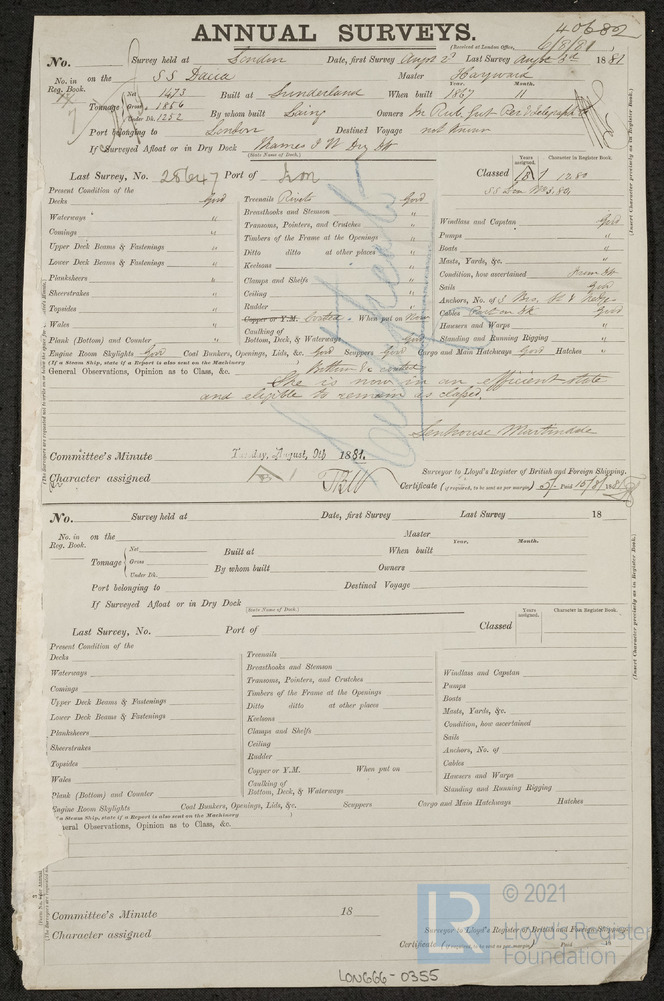 ANNUAL SURVEYS.
40682
(Received at London Office, 6/8/81
No. Survey held at London Date, first Survey Augst 2d Last Survey Augst 3d 1881
No. in Reg. Book. on the SS Dacia Master Hayward
Year. Month.
Tonnage Net 1473 Built at Sunderland When built 1867 11
Gross 1856
Under Dk. 1252 By whom built Laing Owners
Port belonging to London Destined Voyage not known
If Surveyed Afloat or in Dry Dock Thames I W Dry Dk
(State Name of Dock.)
Last Survey, No. 28647 Port of Lon Classed
Years assigned. Character in Register Book.
12.80
Present Condition of the
Decks Good Treenails Rivets Good
Waterways " Breasthooks and Stemson "
Comings " Transoms, Pointers, and Crutches " Windlass and Capstan Good
Upper Deck Beams & Fastenings " Timbers of the Frame at the Openings " Pumps "
Lower Deck Beams & Fastenings " Ditto ditto at other places " Boats "
Planksheers " Keelsons " Masts, Yards, &c. "
Sheerstrakes " Clamps and Shelfs " Condition, how ascertained From Dk
Topsides " Ceiling " Sails Good
Wales " Rudder " Anchors, No. of
Copper or Y.M. Coated When put on Now Cables Good
Plank (Bottom) and Counter " Caulking of Bottom, Deck, & Waterways Good Hawsers and Warps "
Standing and Running Rigging "
Engine Room Skylights Good Coal Bunkers, Openings, Lids, &c. Good Scuppers Good Cargo and Main Hatchways Good Hatches "
(If a Steam Ship, state if a Report is also sent on the Machinery )
General Observations, Opinion as to Class, &c. Bottom coated
She is now in an efficient state
and eligible to remain as classed.
Senhouse Martindale
Committee's Minute Tuesday, August, 9th 1881.
Surveyor to Lloyd's Register of British and Foreign Shipping.
Character assigned
Certificate (if required, to be sent as per margin) Paid 15/8/1881
(Insert Character precisely as in Register Book.)
No. Survey held at Date, first Survey Last Survey 18
No. in Reg. Book. on the Master
Year. Month.
Tonnage Net Built at When built
Gross
Under Dk. By whom built Owners
Port belonging to Destined Voyage
If Surveyed Afloat or in Dry Dock
(State Name of Dock.)
Last Survey, No. Port of Classed
Years assigned. Character in Register Book.
Present Condition of the
Decks Treenails
Waterways Breasthooks and Stemson Windlass and Capstan
Comings Transoms, Pointers, and Crutches Pumps
Upper Deck Beams & Fastenings Timbers of the Frame at the Openings Boats
Lower Deck Beams & Fastenings Ditto ditto at other places Masts, Yards, &c.
Planksheers Keelsons Condition, how ascertained
Sheerstrakes Clamps and Shelfs Sails
Topsides Ceiling Anchors, No. of
Wales Rudder Cables
Copper or Y.M. When put on Hawsers and Warps
Plank (Bottom) and Counter Caulking of Bottom, Deck, & Waterways Standing and Running Rigging
Engine Room Skylights Coal Bunkers, Openings, Lids, &c. Scuppers Cargo and Main Hatchways Hatches
a Steam Ship, state if a Report is also sent on the Machinery )
neral Observations, Opinion as to Class, &c.
(Insert Character precisely as in Register Book.)
Committee's Minute 18
Surveyor to Lloyd's Register of British and Foreign Shipping.
Character assigned
Certificate (if required, to be sent as per margin) Paid 18
LR © 2021
Lloyd's Register
Foundation
LON666-0355